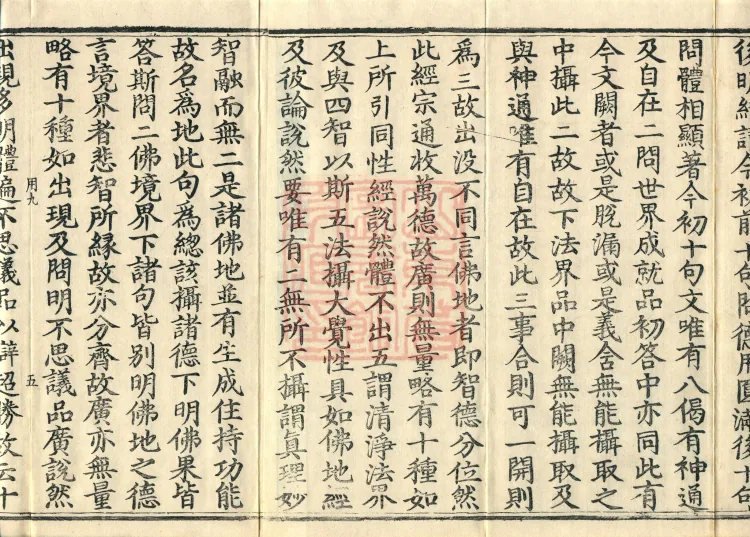 後明經
問體相顯著今初十句文唯有八偈有神通
及自在二問世界成就品初答中亦同此有
今文闕者或是脫漏或是義含無能攝取之
中攝此二故故下法界品中闕無能攝取及
與神通唯有自在故此三事合則可一開則
爲三故出沒不同言佛地者即智德分位然
此經宗通收萬德故廣則無量略有十種如
上所引同性經說然體不出五謂清淨法界
及與四智以斯五法攝大覺性具如佛地經
及彼論說然要唯有二無所不攝謂眞理妙
智融而無二是諸佛地並有生成住持功能
故名爲地此句爲總該攝諸德下明佛果皆
答斯問二佛境界下諸句皆別明佛地之德
言境界者悲智所緣故亦分齊故廣亦無量
略有十種如出現及問明不思議品廣說然
用九 五
出現多明體遍不思議品